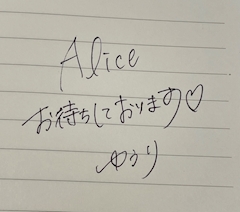 Alice
お待ちしております♡
ゆうり